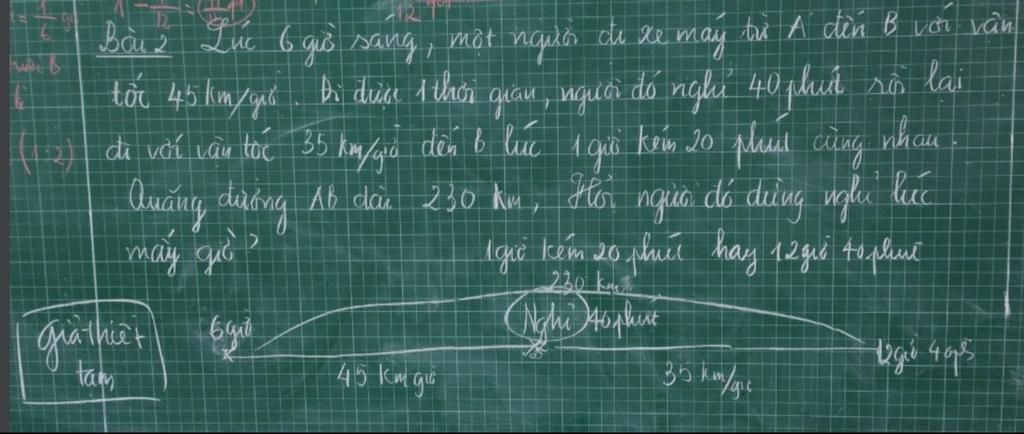 12 giờ
Bài 2 Lúc 6 giờ sáng, một người đi xe máy từ A đến B với vân
tốc 45 km/giờ. Đi được 1 thời gian, người đó nghỉ 40 phút rồi lại
(1:2) đi với vân tốc 35 km/giờ đến B lúc 1 giờ kém 20 phút cùng nhau.
Quãng đường AB dài 230 km, Hỏi người đó dừng nghỉ lúc
mấy giờ?
1 giờ kém 20 phút hay 12 giờ 40 phút
230 km
6 giờ Nghỉ 40 phút
giả thiết
tạm
12 giờ 40p
45 Km giờ 35 km/giờ